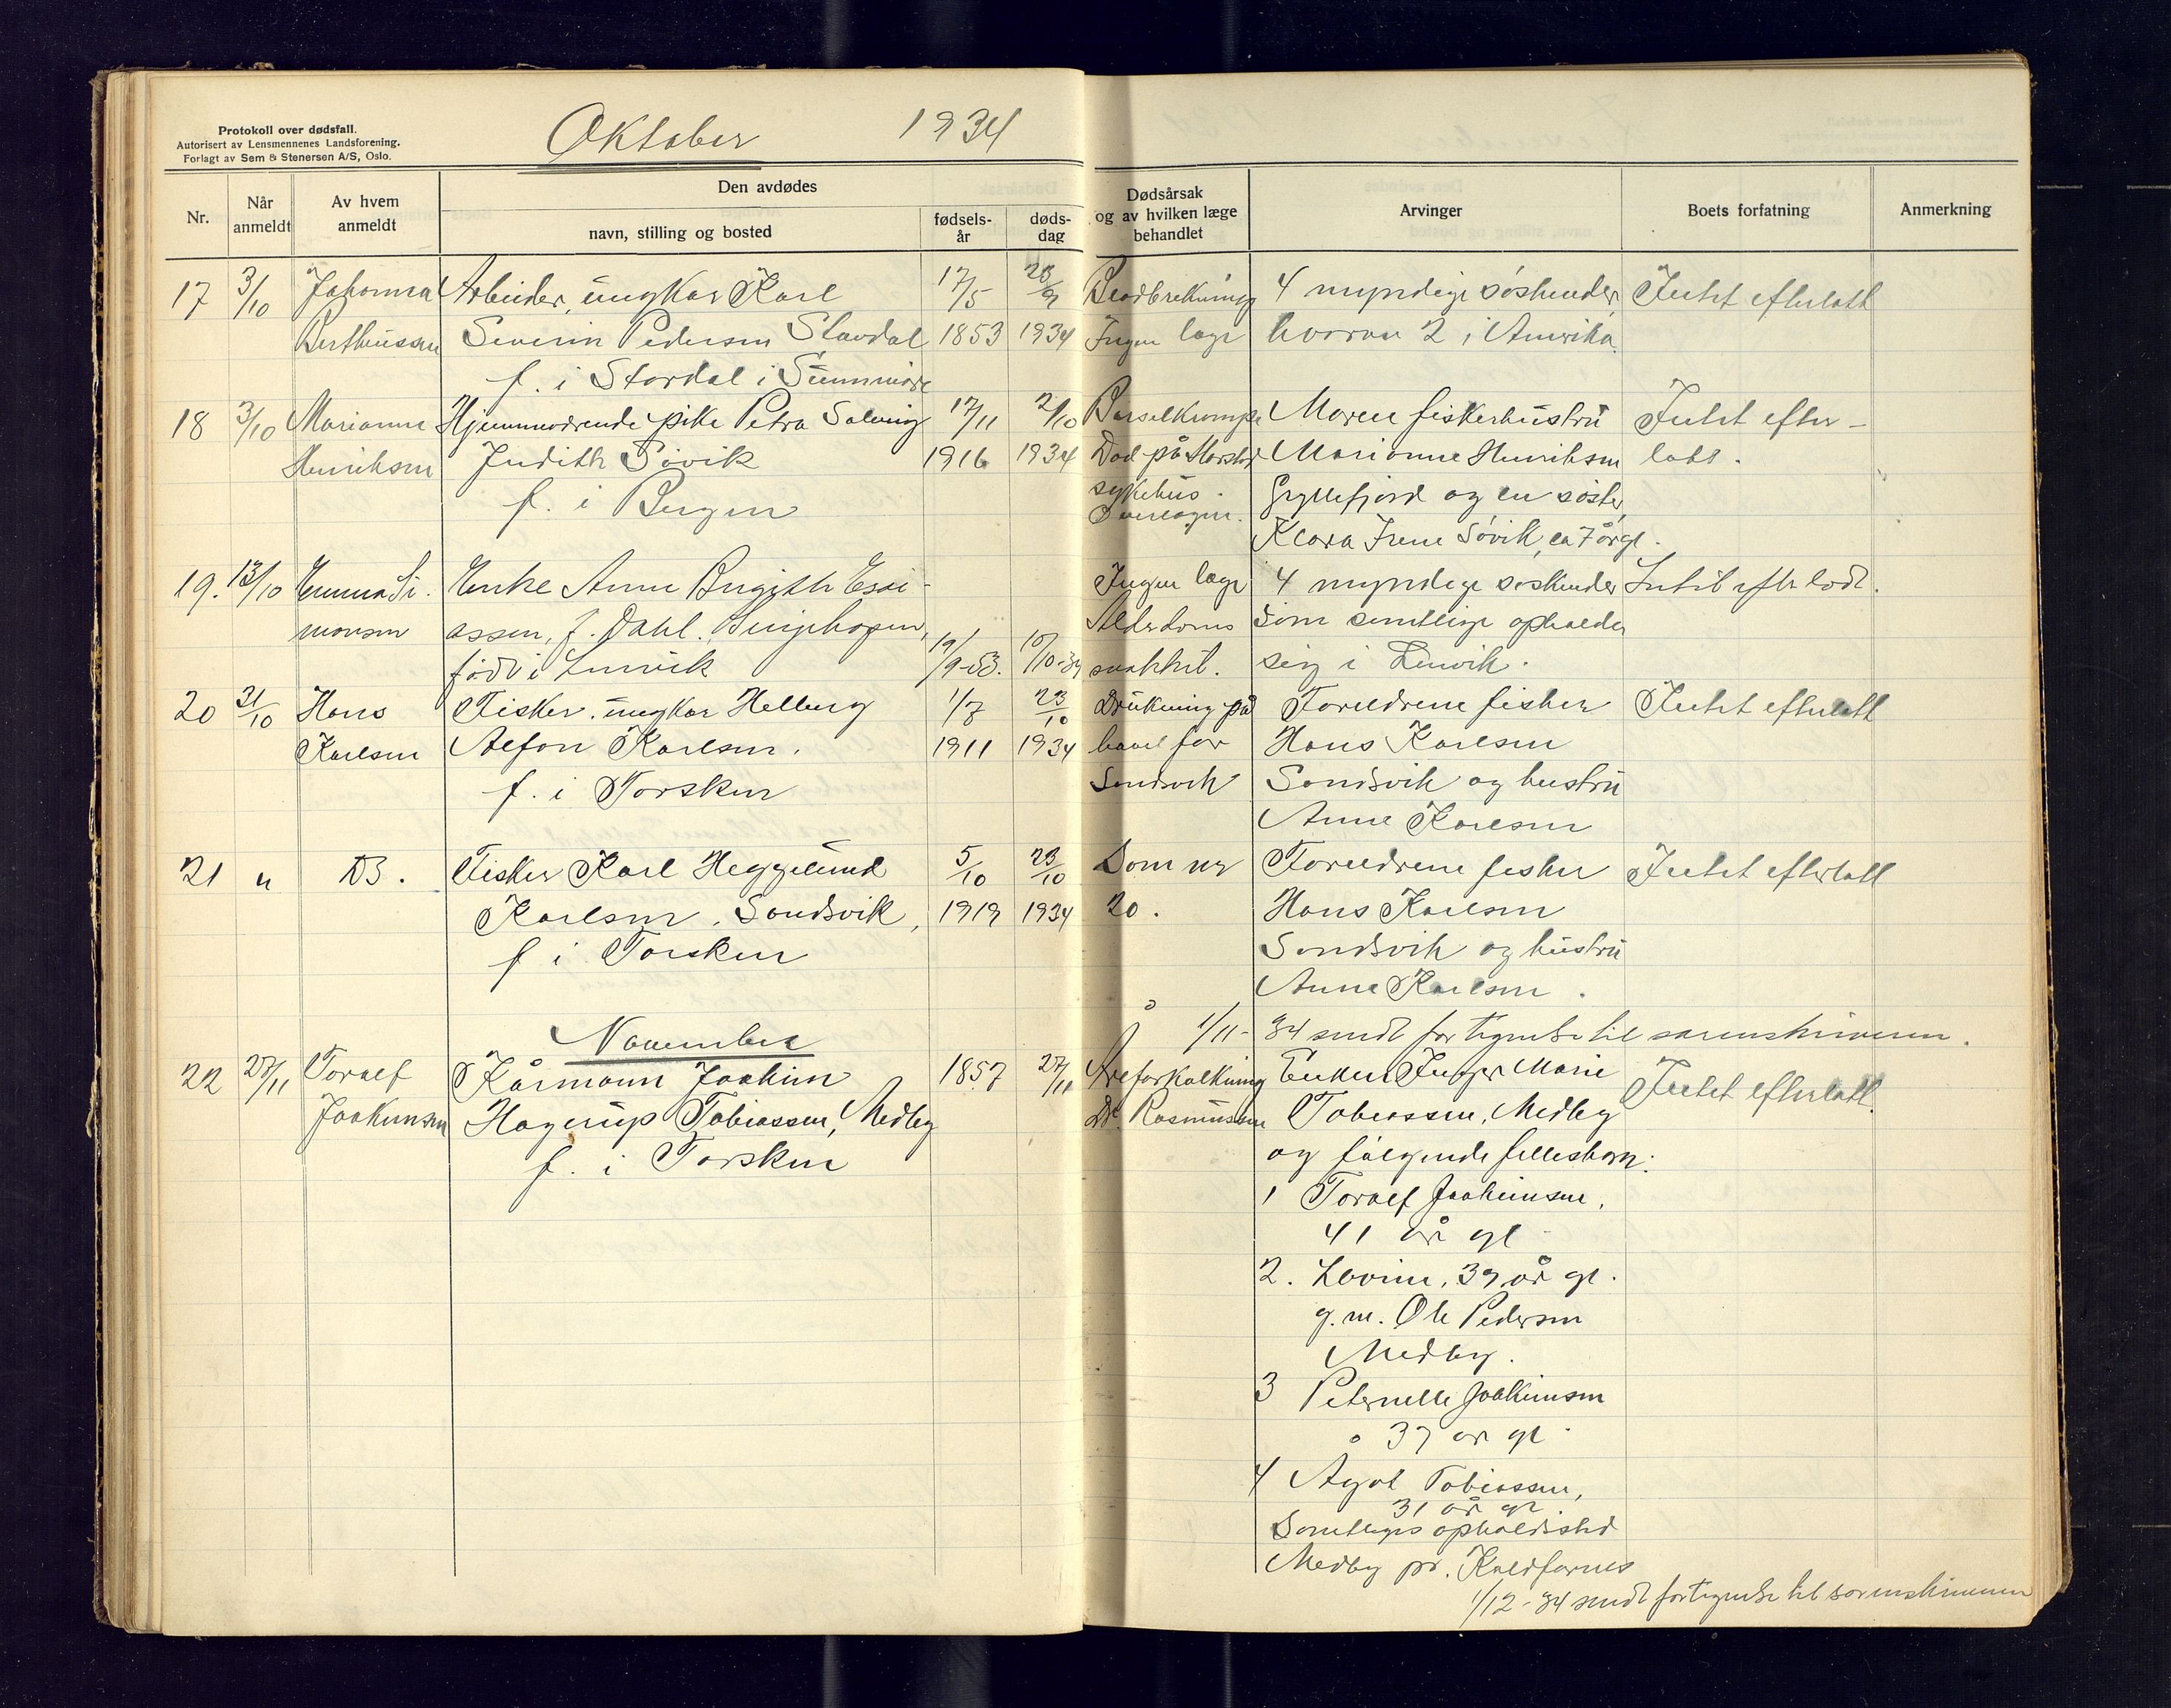 Protokoll over dødsfall.
Autorisert av Lensmennenes Landsforening.
Forlagt av Sem & Stenersen A/S, Oslo.
Oktober 1934
Nr.
Når anmeldt
Av hvem anmeldt
Den avdødes
navn, stilling og bosted
fødsels-år
døds-dag
Dødsårsak og av hvilken læge behandlet
Arvinger
Boets forfatning
Anmerkning
17 3/10 Johanna Arbeider, ungkar Karl 17/5 23/9 4 myndige søskende, Intet efterlatt
Bertheussen Severin Pedersen Stavdal 1853 1934 Ingen læge hvorav 2 i Amerika
f. i Stordal i Sunnmøre
18 3/10 Marianne Hjemmeværende pike Petra Solveig 17/11 2/10 Barselkrampe Moren fiskerhustru Intet efter-
Henriksen Judith Søvik 1916 1934 Død på Harstad Marianne Henriksen latt.
f. i Bergen sykehus. Gryllefjord og en søster
Overlægen. Klara Irene Søvik, ca 7 år gl.
19. 13/10 Emma Si- Enke Anne Birgith Esai- Ingen læge 4 myndige søskender Intet efterladt.
monsen assen, f. Dahl. Alderdoms som samtlige opholder
født i Lenvik 19/9-53. 10/10-34 svakhet. sig i Lenvik.
20 31/10 Hans Fisker, ungkar Helberg 1/7 23/10 Drukning på Foreldrene fisker Intet efterlatt
Karlsen Alfon Karlsen. 1911 1934 havet for Hans Karlsen
f. i Torsken Sandsvik Sandsvik og hustru
Anne Karlsen
21 " DO. Fisker Karl Heggelund 5/10 23/10 Som nr Foreldrene fisker Intet efterlatt
Karlsen, Sandsvik, 1919 1934 20. Hans Karlsen
f i Torsken Sandsvik og hustru
Anna Karlsen.
1/11-34 sendt fortegnelse til sorenskriveren.
November
22 27/11 Toralf Kårmann Joakim 1857 27/11 Åreforkalkning Enken Inger Marie Intet efterlatt.
Joakimsen Hagerup Tobiassen, Medby Dr. Rasmussen Tobiassen, Medby
f. i Torsken og følgende fellesbarn:
1 Toralf Joakimsen,
41 år gl
2. Lovise, 39 år gl.
g. m. Ole Pedersen
Medby.
3 Peternelle Joakimsen
37 år gl.
4 Ågot Tobiassen,
31 år gl.
Samtliges opholdssted
Medby pr. Kaldfarnes
1/12-34 sendt fortegnelse til sorenskriveren